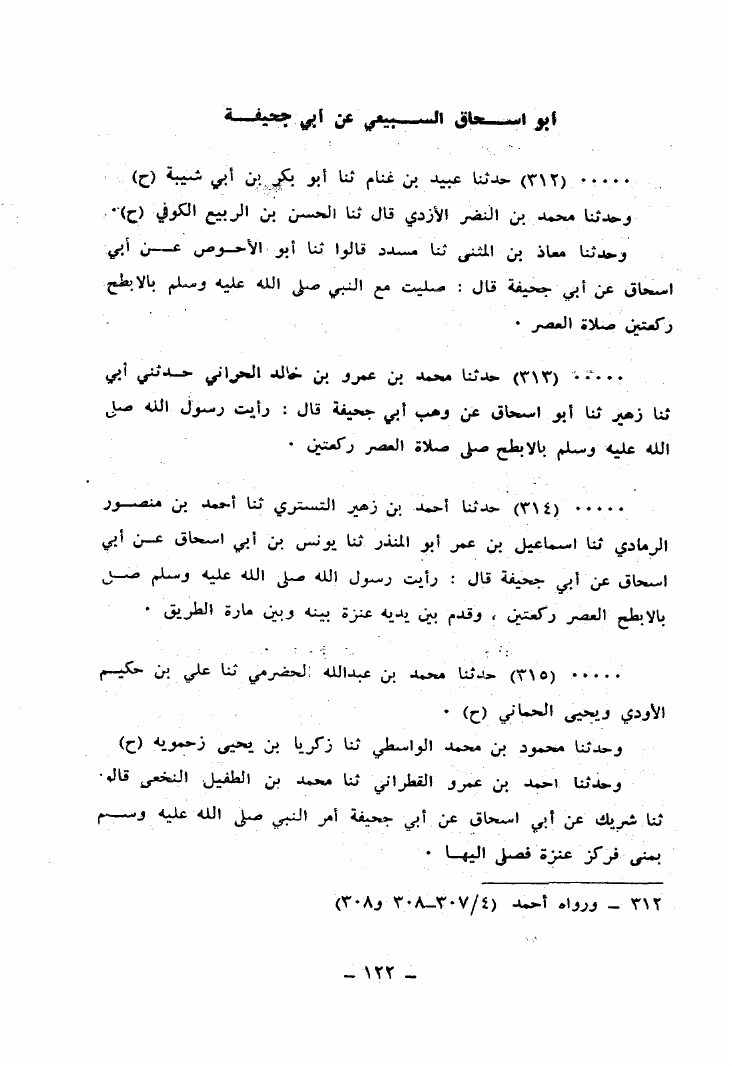 أبو اســـحاق الســـبيعي عن أبي جحيفــة
٠٠٠٠٠ (٣١٢) حدثنا عبيد بن غنام ثنا أبو بكر بن أبي شيبة (ح)
وحدثنا محمد بن النضر الأزدي قال ثنا الحسن بن الربيع الكوفي (ح)٠
وحدثنا معاذ بن المثنى ثنا مسدد قالوا ثنا أبو الأحـوص عـــن أبي
اسحاق عن أبي جحيفة قال : صليت مع النبي صلى الله عليه وسلم بالابطح
ركعتين صلاة العصر ٠
٠٠٠٠٠ (٣١٣) حدثنا محمد بن عمرو بن خالد الحراني حـدثني أبي
ثنا زهير ثنا أبو اسحاق عن وهب أبي جحيفة قال : رأيت رسول الله صلى
الله عليه وسلم بالابطح صلى صلاة العصر ركعتين ٠
٠٠٠٠٠ (٣١٤) حدثنا أحمد بن زهير التستري ثنا أحمد بن منصـــور
الرمادي ثنا اسماعيل بن عمر أبو المنذر ثنا يونس بن أبي اسحاق عـن أبي
اسحاق عن أبي جحيفة قال : رأيت رسول الله صلى الله عليه وسلم صــلى
بالابطح العصر ركعتين ، وقدم بين يديه عنزة بينه وبين مارة الطريق ٠
٠٠٠٠٠ (٣١٥) حدثنا محمد بن عبدالله الحضرمي ثنا علي بن حكيـــم
الأودي ويحيى الحماني (ح) ٠
وحدثنا محمود بن محمد الواسطي ثنا زكريا بن يحيى زحمويه (ح)
وحدثنا احمد بن عمرو القطراني ثنا محمد بن الطفيل النخعى قالو
ثنا شريك عن أبي اسحاق عن أبي جحيفة أمر النبي صلى الله عليه وســـم
بمنى فركز عنزة فصلى اليهــا ٠
٣١٢ ـ ورواه أحمد (٤/٣٠٧ـ٣٠٨ و٣٠٨)
ـ ١٢٢ ـ